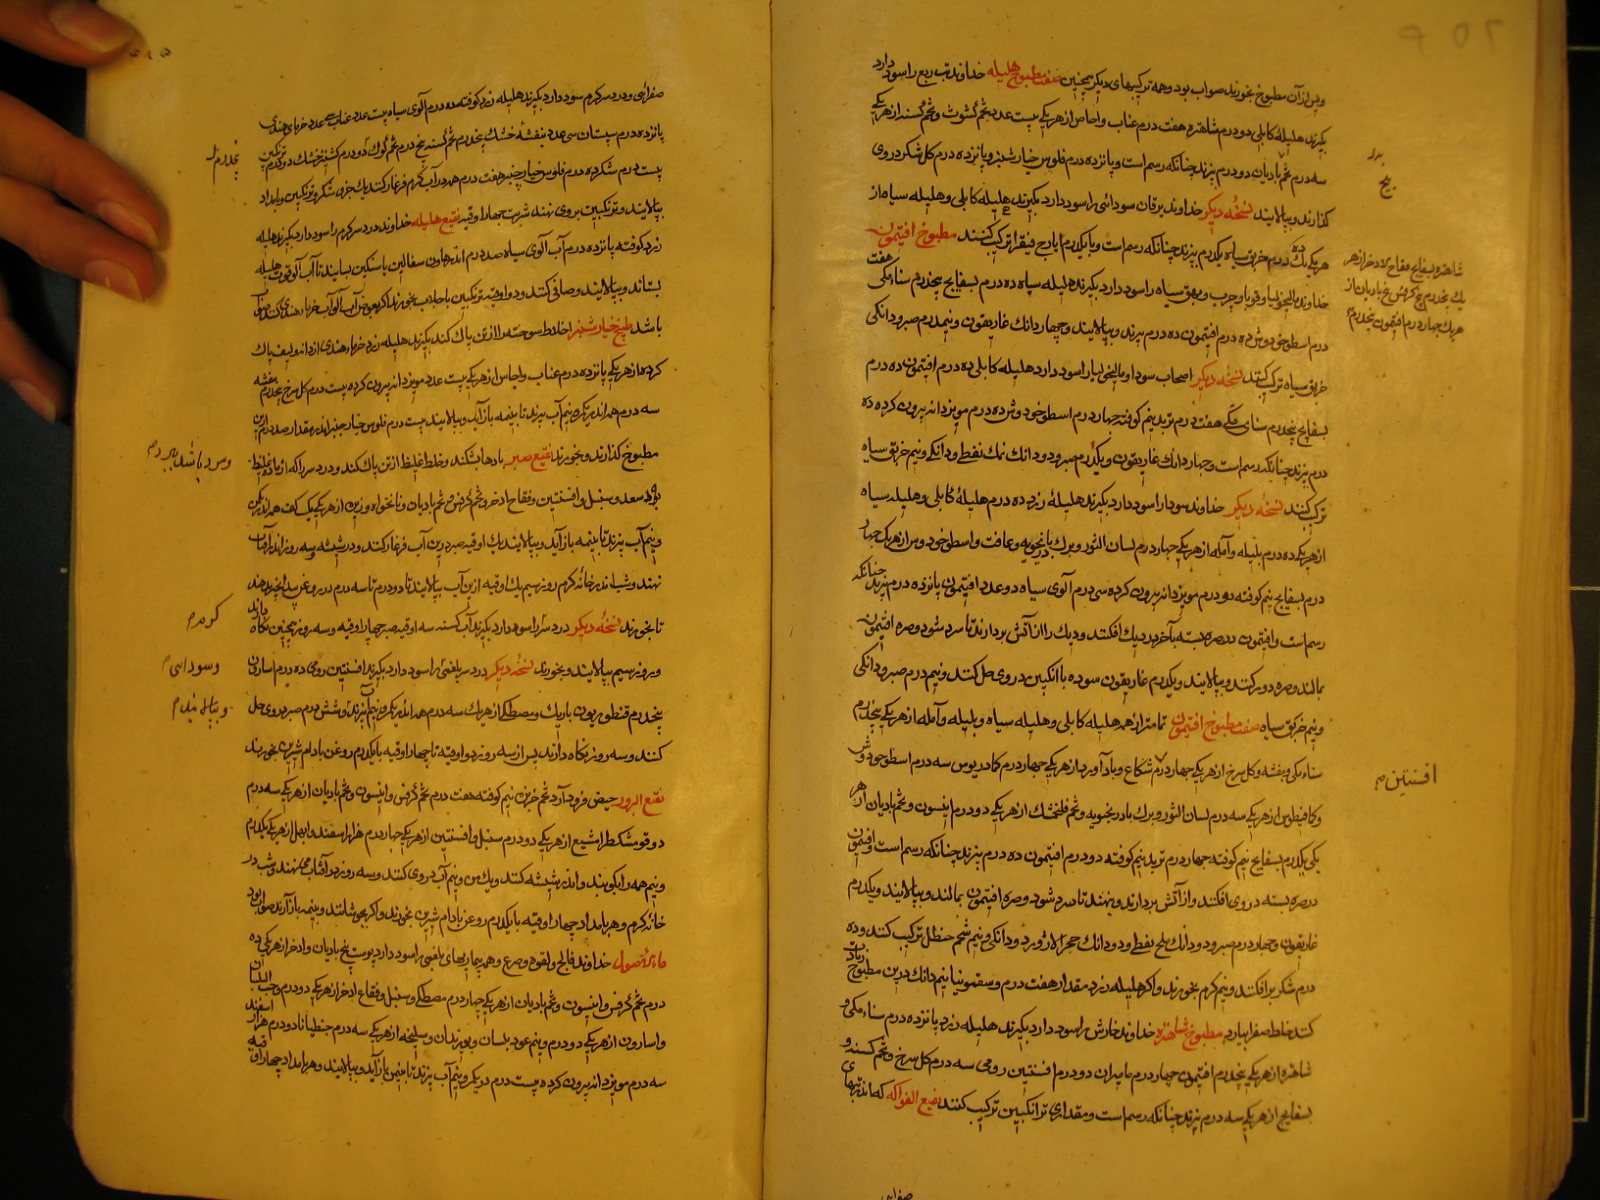 وپس ازآن مطبوخ بخورند صواب بود وهه ترکیبهای دیکر همچنین صفت مطبوخ هلیله خداوند تب ربع را سود دارد
بکیرند هلیله کابلی دو درم شاهتره هفت درم عناب واجاص ازهریکی بیست عدد تخم کشوث وتخم کسنه ازهریکی
سه درم تخم بادیان دو درم بپزند چنانکه رسم است و پانزده درم فلوس خیارشنبر وپانزده درم کل شکر دروی
کذارند وبپالایند نسخهٔ دیکر خداوند یرقان سودائی را سود دارد بکیرند هلیله کابلی وهلیله سیاه از
هریکی ده درم خربق سیاه یکدرم بپزند چنانکه رسم است وبا یکدرم ایارج فیقرا ترکیب کنند مطبوخ افتیمون
خداوند مالیخولیا وقوبا وجرب وبهق سیاه را سود دارد بکیرند هلیله سیاه ده درم بسفایج پنجدرم سناء مکی هفت
درم اسطوخودوش ده درم افتیمون ده درم بپزند وبپالایند وچهار دانک غاریقون ونیمدرم صبر ودانکی
خربق سیاه ترکیب کنند نسخهٔ دیکر اصحاب سودا ومالیخولیا را سود دارد هلیله کابلی ده درم افتیمون ده درم
بسفایج پنجدرم سنای مکی هفت درم تربد نیم کوفته چهار درم اسطوخودوش ده درم مویز دانه بیرون کرده ده
درم بپزند چنانکه رسم است وچهار دانک غاریقون ویکدرم صبر ودو دانک نمک نفطی ودانکی ونیم خربق سیاه
ترکیب کنند نسخهٔ دیکر خداوند سودا را سود دارد بکیرند هلیلهٔ زرد ده درم هلیلهٔ کابلی وهلیله سیاه
ازهریکی ده درم بلیله وآمله ازهریکی چهار درم لسان الثور وبرک بادرنجویه وغافت واسطوخودوس ازهریک چهار
درم بسفایج نیم کوفته دو درم مویز دانه بیرون کرده سی درم آلوی سیاه دو عدد افتیمون پانزده درم بپزند چنانکه
رسم است وافتیمون درصره بسته بآخر در دیک افکنند ودیک را از آتش بردارند تا سرد شود وصره افتیمون
بمالند وصره دور کنند وبپالایند ویکدرم غاریقون سوده با انکبین دروی حل کنند ونیم درم صبر ودانکی
ونیم خربق سیاه صفت مطبوخ افتیمون تمامتر از همه هلیله کابلی وهلیله سیاه وبلیله وآمله ازهریکی پنجدرم
سناء مکی وبنفشه وکل سرخ ازهریکی چهار درم شکاع وبادآورد ازهریکی چهار درم کمادریوس سه درم اسطوخودوش
وکمافیطوس ازهریکی سه درم لسان الثور وبرک بادرنجویه وتخم فلنجمشک ازهریکی دو درم انیسون وتخم بادیان ازهر
یکی یکدرم بسفایج نیم کوفته چهار درم تربد نیم کوفته دو درم افتیمون ده درم بپزند چنانکه رسم است وافتیمون
درصره بسته در وی افکنند واز آتش بردارند وبنهند تا سرد شود وصره افتیمون بمالند وبپالایند ویکدرم
غاریقون وچهار درم صبر ودو دانک ملح نفطی ودو دانک حجر لازورد ودانکی ونیم شحم حنظل ترکیب کنند وده
درم شکر برافکنند ونیم کرم بخورند واکر هلیله زرد مقدار هفت درم وسقمونیا نیم دانک درین مطبوخ زیادت
کنند خلط صفرا بیارد مطبوخ شاهتره خداوند خارش را سود دارد بکیرند هلیله زرد پانزده درم سناء مکی و
شاهتره ازهریکی پنجدرم افتیمون چهار درم مامیران دو درم افسنتین رومی سه درم کل سرخ وتخم کسنه و
بسفایج ازهریکی سه درم بپزند چنانکه رسم است ومقداری ترانکبین ترکیب کنند نقیع الفواکه که اندر تبهای
صفرایی
افسنتین م
صفرائی ودرد سر کرم سود دارد بکیرند هلیله زرد کوفته ده درم آلوی سیاه بیست عدد عناب سی عدد خرمای هندی
پانزده درم سپستان سی عدد بنفشه خشک پنجدرم تخم کسنه پنج درم تخم کوک دو درم کشنیز خشک دو درم ترنکبین
بیست درم شکر ده درم فلوس خیارچنبر هفت درم همه در آب کرم فرغار کنند یک جز شکر وترنکبین وبامداد
بپالایند وترنکبین بروی نهند شربت چهار اوقیه نقیع هلیله خداوند درد سر کرم را سود دارد بکیرند هلیله
زرد کوفته پانزده درم آب آلوی سیاه صد درم اندر هاون سفالین یا سنکین بسایند تا آب آلو قوت هلیله
بستاند وبپالایند وصافی کنند ودو اوقیه ترنکبین با جلاب بخورند اکر بعوض آب آلو آب خرماء هندی کنند صواب
باشد طبیخ خیارشنبر اخلاط سوخته را از تن پاک کند بکیرند هلیله زرد خرماء هندی از دانه ولیف پاک
کرده ازهریکی پانزده درم عناب واجاص ازهریکی بیست عدد مویز دانه بیرون کرده بیست درم کل سرخ پنجدرم بنفشه
سه درم همه اندر یکمن ونیم آب بپزند تا بنیمه باز آید وبپالایند بیست درم فلوس خیارچنبر اندر مقدار صد درم ازین
مطبوخ کذارند وبخورند نقیع صبر بادها بشکند وخلط غلیظ از تن پاک کند ودرد سر را که از ماده غلیظ
بود سعد وسنبل وافسنتین وفقاح اذخر وتخم کرفس وتخم بادیان ونانخواه وزیره ازهریکی یک کف همه اندر یکمن
ونیم آب بپزند تا بنیمه باز آید وبپالایند یک اوقیه صبر درین آب فرغار کنند ودر شیشه وسه روز اندر آفتاب
نهند وشب اندر خانه کرم روز سیم یک اوقیه ازین آب بپالایند تا دو درم تا سه درم در روغن بید انجیر بدهند
تا بخورند نسخهٔ دیکر درد سر را سود دارد بکیرند آب کسنه سه اوقیه صبر چهار اوقیه وسه روز همچنین نکاه دارند
وبروز سیم بپالایند وبخورند نسخهٔ دیکر درد سر بلغمی را سود دارد بکیرند افسنتین رومی ده درم اسارون
پنجدرم قنطوریون باریک ومصطکی ازهریک سه درم همه اندر یکمن ونیم آب بپزند وشش درم صبر دروی حل
کنند وسه روز نکاه دارند پس از سه روز دو اوقیه تا چهار اوقیه با یکدرم روغن بادام شیرین بخورند
نقیع البزور حیض فرود آرد تخم خربزه نیم کوفته هفت درم تخم کرفس وانیسون وتخم بادیان ازهریکی سه درم
دوقو مشکطرامشیع ازهریکی دو درم سنبل وافسنتین ازهریکی چهار درم هزاراسفند وابهل ازهریکی یکدرم
ونیم همه را بکوبند واندر شیشه کنند ویک من ونیم آب دروی کنند وسه روز در آفتاب می نهند وشب در
خانه کرم وهر بامداد چهار اوقیه با یکدرم روغن بادام شیرین بخورند واکر بجوشانند وبنیمه باز آرند صواب بود
ماء الاصول خداوند فالج ولقوه وصرع وهمه بیماریهای بلغمی را سود دارد پوست بیخ بادیان واذخر ازهریکی ده
درم تخم کرفس وانیسون وتخم بادیان ازهریکی چهار درم مصطکی وسنبل وفقاع اذخر ازهریکی دو درم وحب البان
واسارون ازهریکی دو درم ونیم عود بلسان وبوزیدان وسلیخه ازهریکی سه درم جنطیانا دو درم هزار اسفند
سه درم مویز دانه بیرون کرده بیست درم در یکمن ونیم آب بپزند تا بنیمه باز آید وبپالایند وهر بامداد چهار اوقیه
وسوداسی م